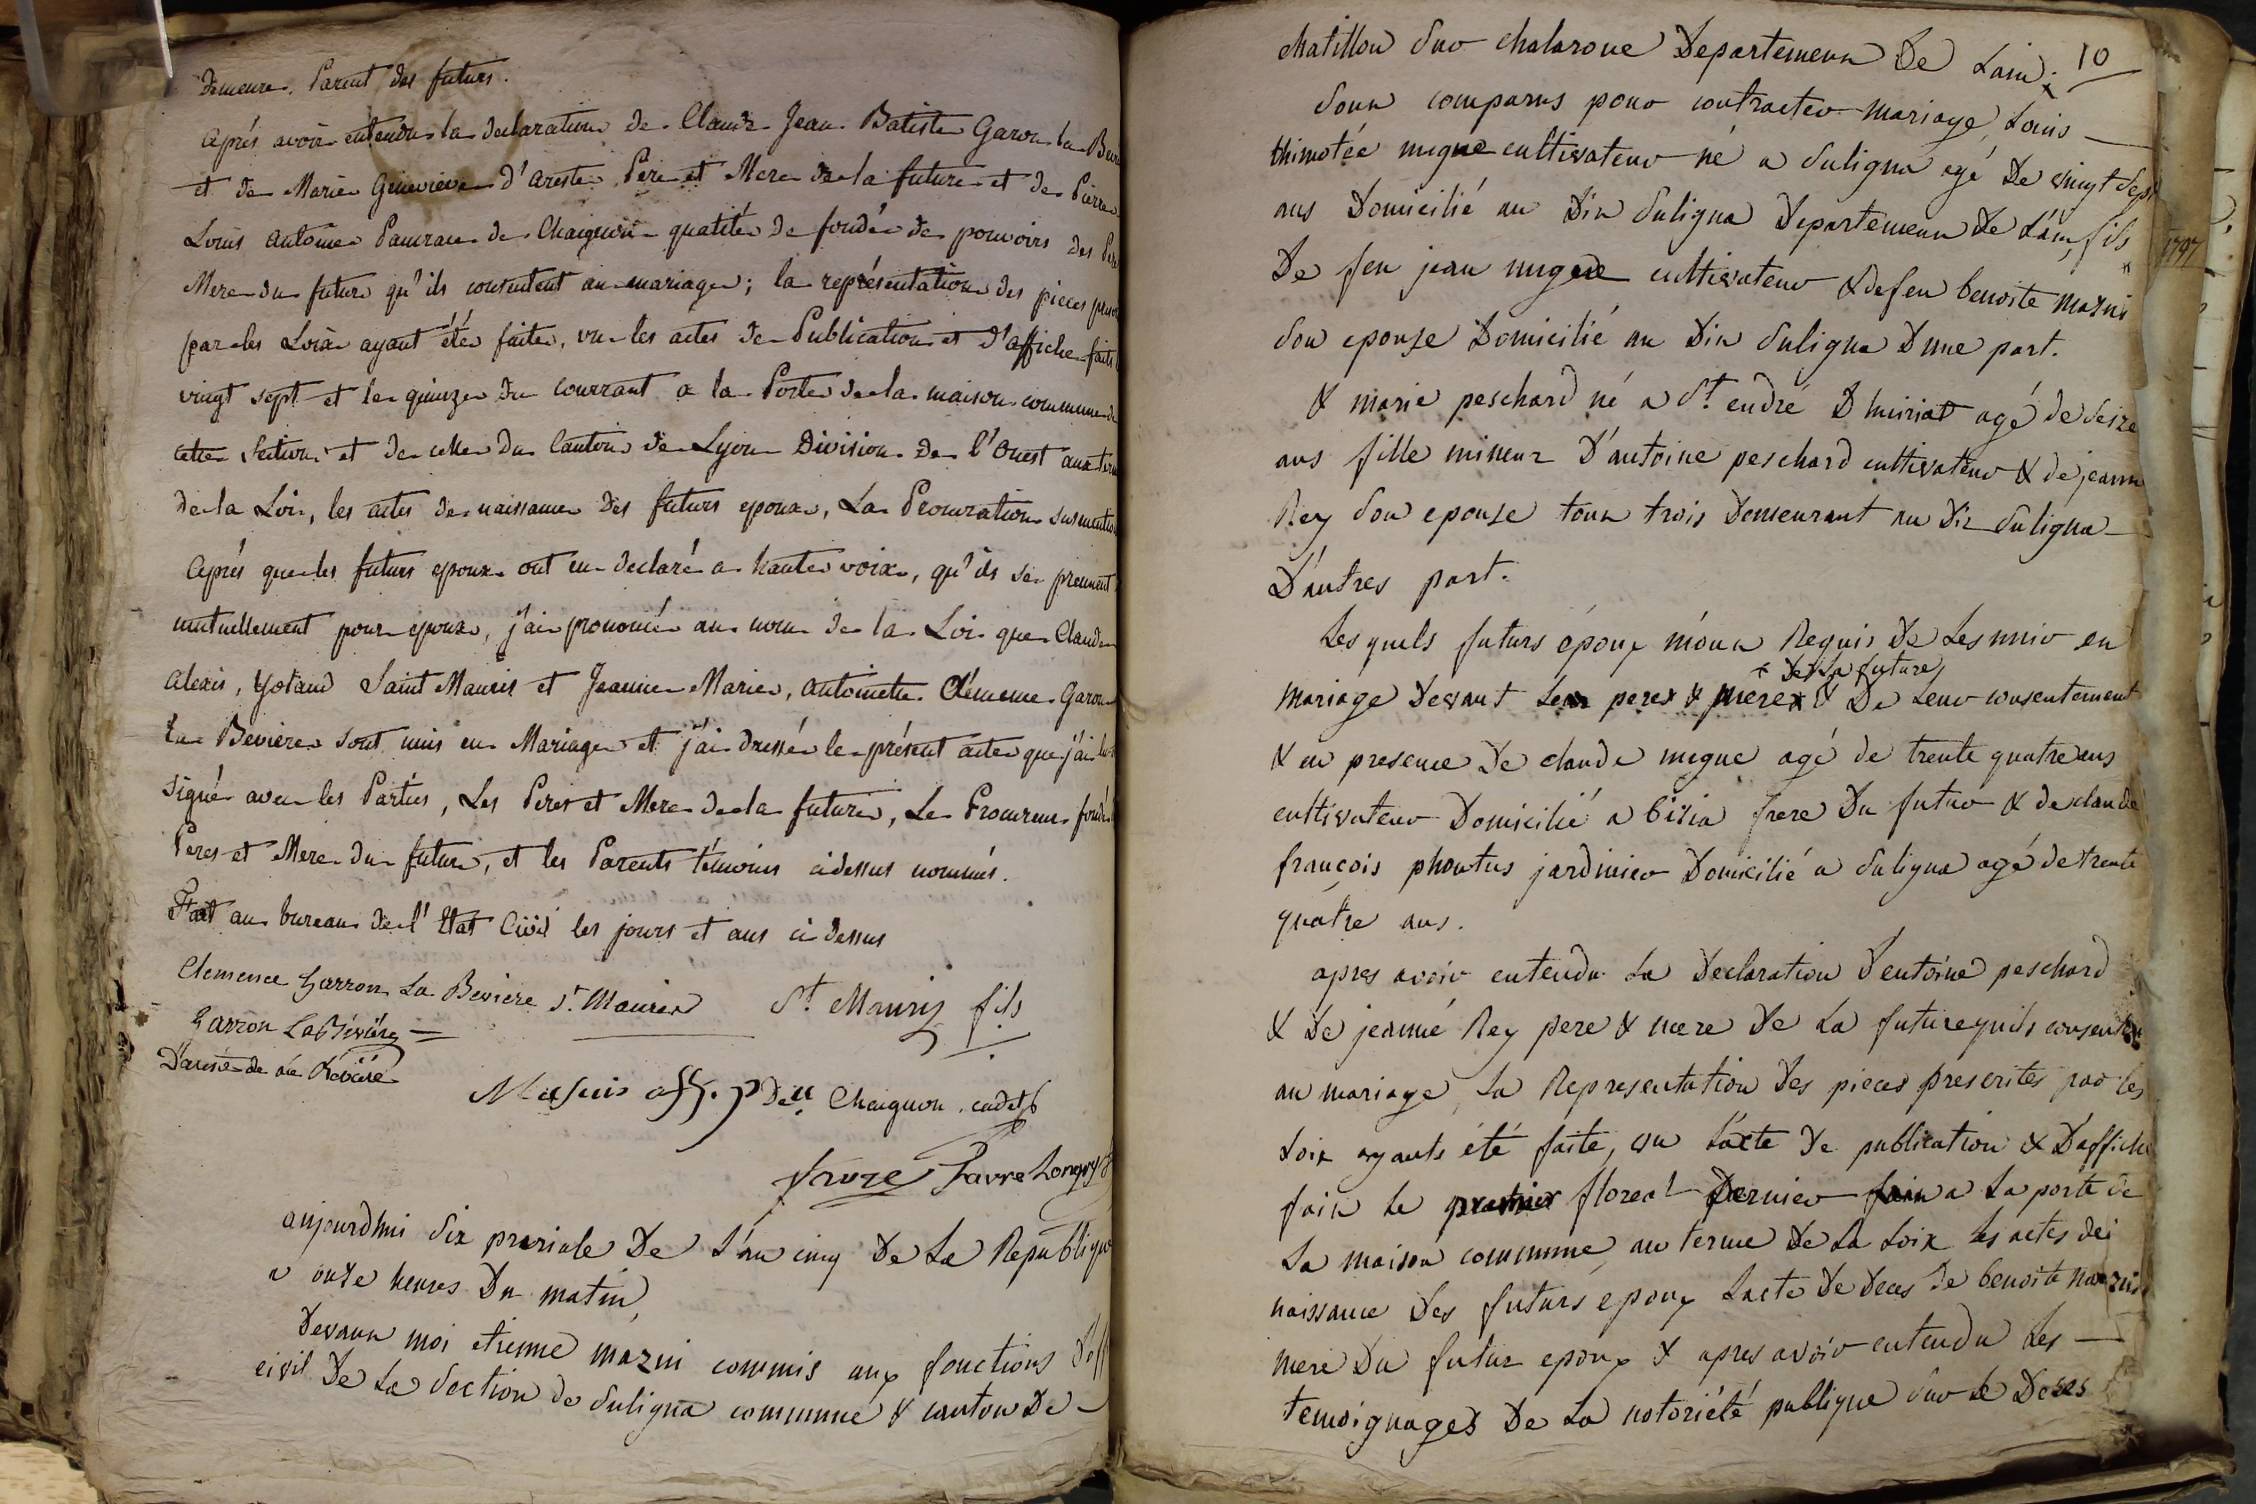 Demeure. Parent des futurs.
Après avoir entendu la declaration de Claude Jean Batiste Garon la
et de Marie Genevieve d'Areste Pere et Mere de la future et de Pierre
Louis Antoine de Chaignon qualité de fondé de pouvoirs des
Mere du futur qu'ils consentent au mariage; la représentation des pieces
par les Loix ayant été faite, vu les actes de Publication et d'affiche faits
vingt sept et le quinze du courrant a la Porte de la maison commune de
cette Section et de celle du Canton de Lyon Division de l'Ouest aux
de la Loi, les actes de naissance des futurs epoux, La Procuration
Après que les futurs epoux ont eu declaré a haute voix, qu'ils se prennent
mutuellement pour epoux, j'ai prononcé au nom de la Loi que Claude
Alexis, Saint Mauris et Jeanne Marie, Antoinette Clémence Garon
La Beviere sont unis en Mariage et j'ai dressé le présent acte que j'ai
signé avec les Parties, Les Peres et Mere de la future, Le Procureur
Peres et Mere du futur, et les Parents témoins cidessus nommés.
Fait au bureau de l'Etat Civil les jours et ans ci dessus
Clemence Garron La Beviere St. Mauris St. Mauris fils
Garron La Béviere
Chaignon cadet
Favre Longry
aujourdhui dix preriale De L'an cinq De La Republique
a onze heures Du matin,
Devant moi etienne mazui commis aux fonctions
civil De La Section de Suligna commune & canton De
chatillon sur chalarone Departement De Lain. 10
Sont comparus pour contracter mariage, Louis
thimotée migne cultivateur né a Suligna agé De vingt sept
ans Domicilié au Dit Suligna Departement De L'ain, fils
De feu jean migne cultivateur & de feu benoite mazui
1797
son epouse Domicilié au Dit Suligna D une part.
& marie peschard né a St. endré D huiriat agé de seize
ans fille mineur D'antoine peschard cultivateur & de jeanne
Rey son epouse tous trois Demeurant au Dit Suligna
D'autres part.
Lesquels futurs époux m'ont Requis De Les unir en
* De La future
mariage Devant peres & meres * & De Leur consentement
& en presence De claude migne agé de trente quatre ans
cultivateur Domicilié a frere Du futur & de claude
françois jardinier Domicilié a Suligna agé de trente
quatre ans.
apres avoir entendu La Declaration D'entoine peschard
& De jeanne Rey pere & mere De La future quils consentent
au mariage, La Representation Des pieces prescrites par les
Loix ayants été faite, vu L'acte De publication & D'affiche
fait le premier floreal Dernier a La porte de
La maison commune, au terme De La Loix Les actes de
naissance Des futurs époux Lacte De Deces De benoite mazui
mere Du futur epoux & apres avoir entendu Les
temoignages De La notoriété publique sur le Deces